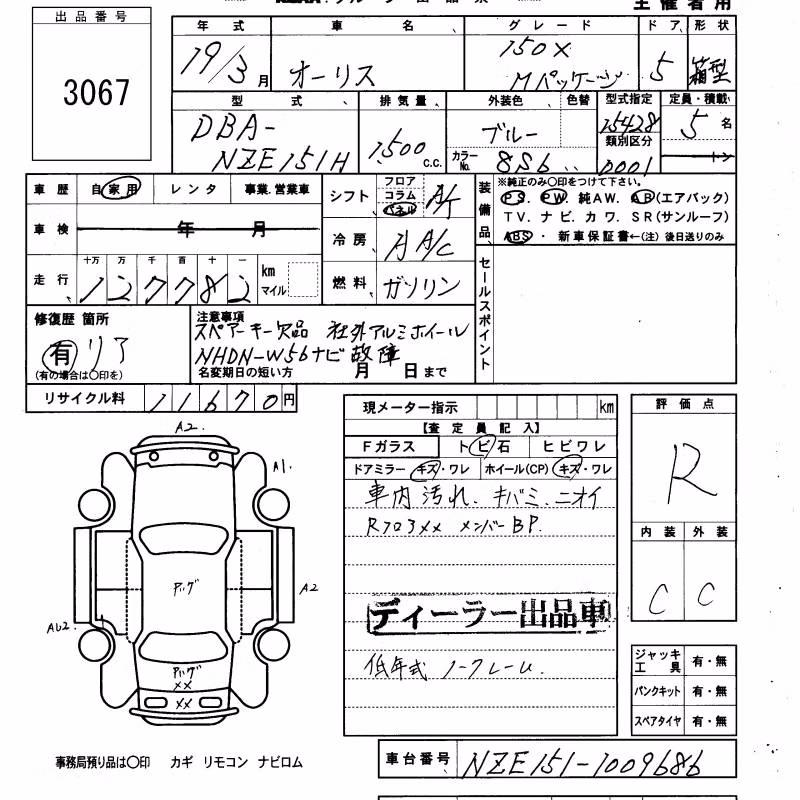 主催者用
出品番号
3067
年式 車名 グレード ドア 形状
19/3月 オーリス 150X Mパッケージ 5 箱型
型式 排気量 外装色 色替 型式指定 定員・積載
DBA-NZE151H 1500 c.c. ブルー 15428 5名
カラーNo. 8S6 類別区分 0001 トン
車歴 自家用 レンタ 事業.営業車
車検 年 月
走行 十万 万 千 百 十 一
127782 km マイル
シフト フロア コラム パネル A/T
冷房 A A/C
燃料 ガソリン
装備品
※純正のみ〇印をつけて下さい。
PS. PW. 純AW. AB(エアバック)
TV. ナビ. カワ. SR(サンルーフ)
ABS・ 新車保証書←(注)後日送りのみ
セールスポイント
修復歴 箇所
有 リア
(有の場合は〇印を)
注意事項
スペアーキー欠品 社外アルミホイール
NHDN-W56ナビ故障
名変期日の短い方 月 日まで
リサイクル料 11670円
現メーター指示 km
【査定員記入】
Fガラス トビ石 ヒビワレ
ドアミラー キズ・ワレ ホイール(CP) キズ・ワレ
車内汚れ. キバミ. ニオイ
Rフロアxx メンバーBP.
ディーラー出品車
低年式 ノークレーム.
評価点
R
内装 外装
C C
A2.
A1.
アッグ
A2
AU2.
アッグ
xx
xx
ジャッキ工具 有・無
パンクキット 有・無
スペアタイヤ 有・無
事務局預り品は〇印 カギ リモコン ナビロム
車台番号 NZE151-1009686